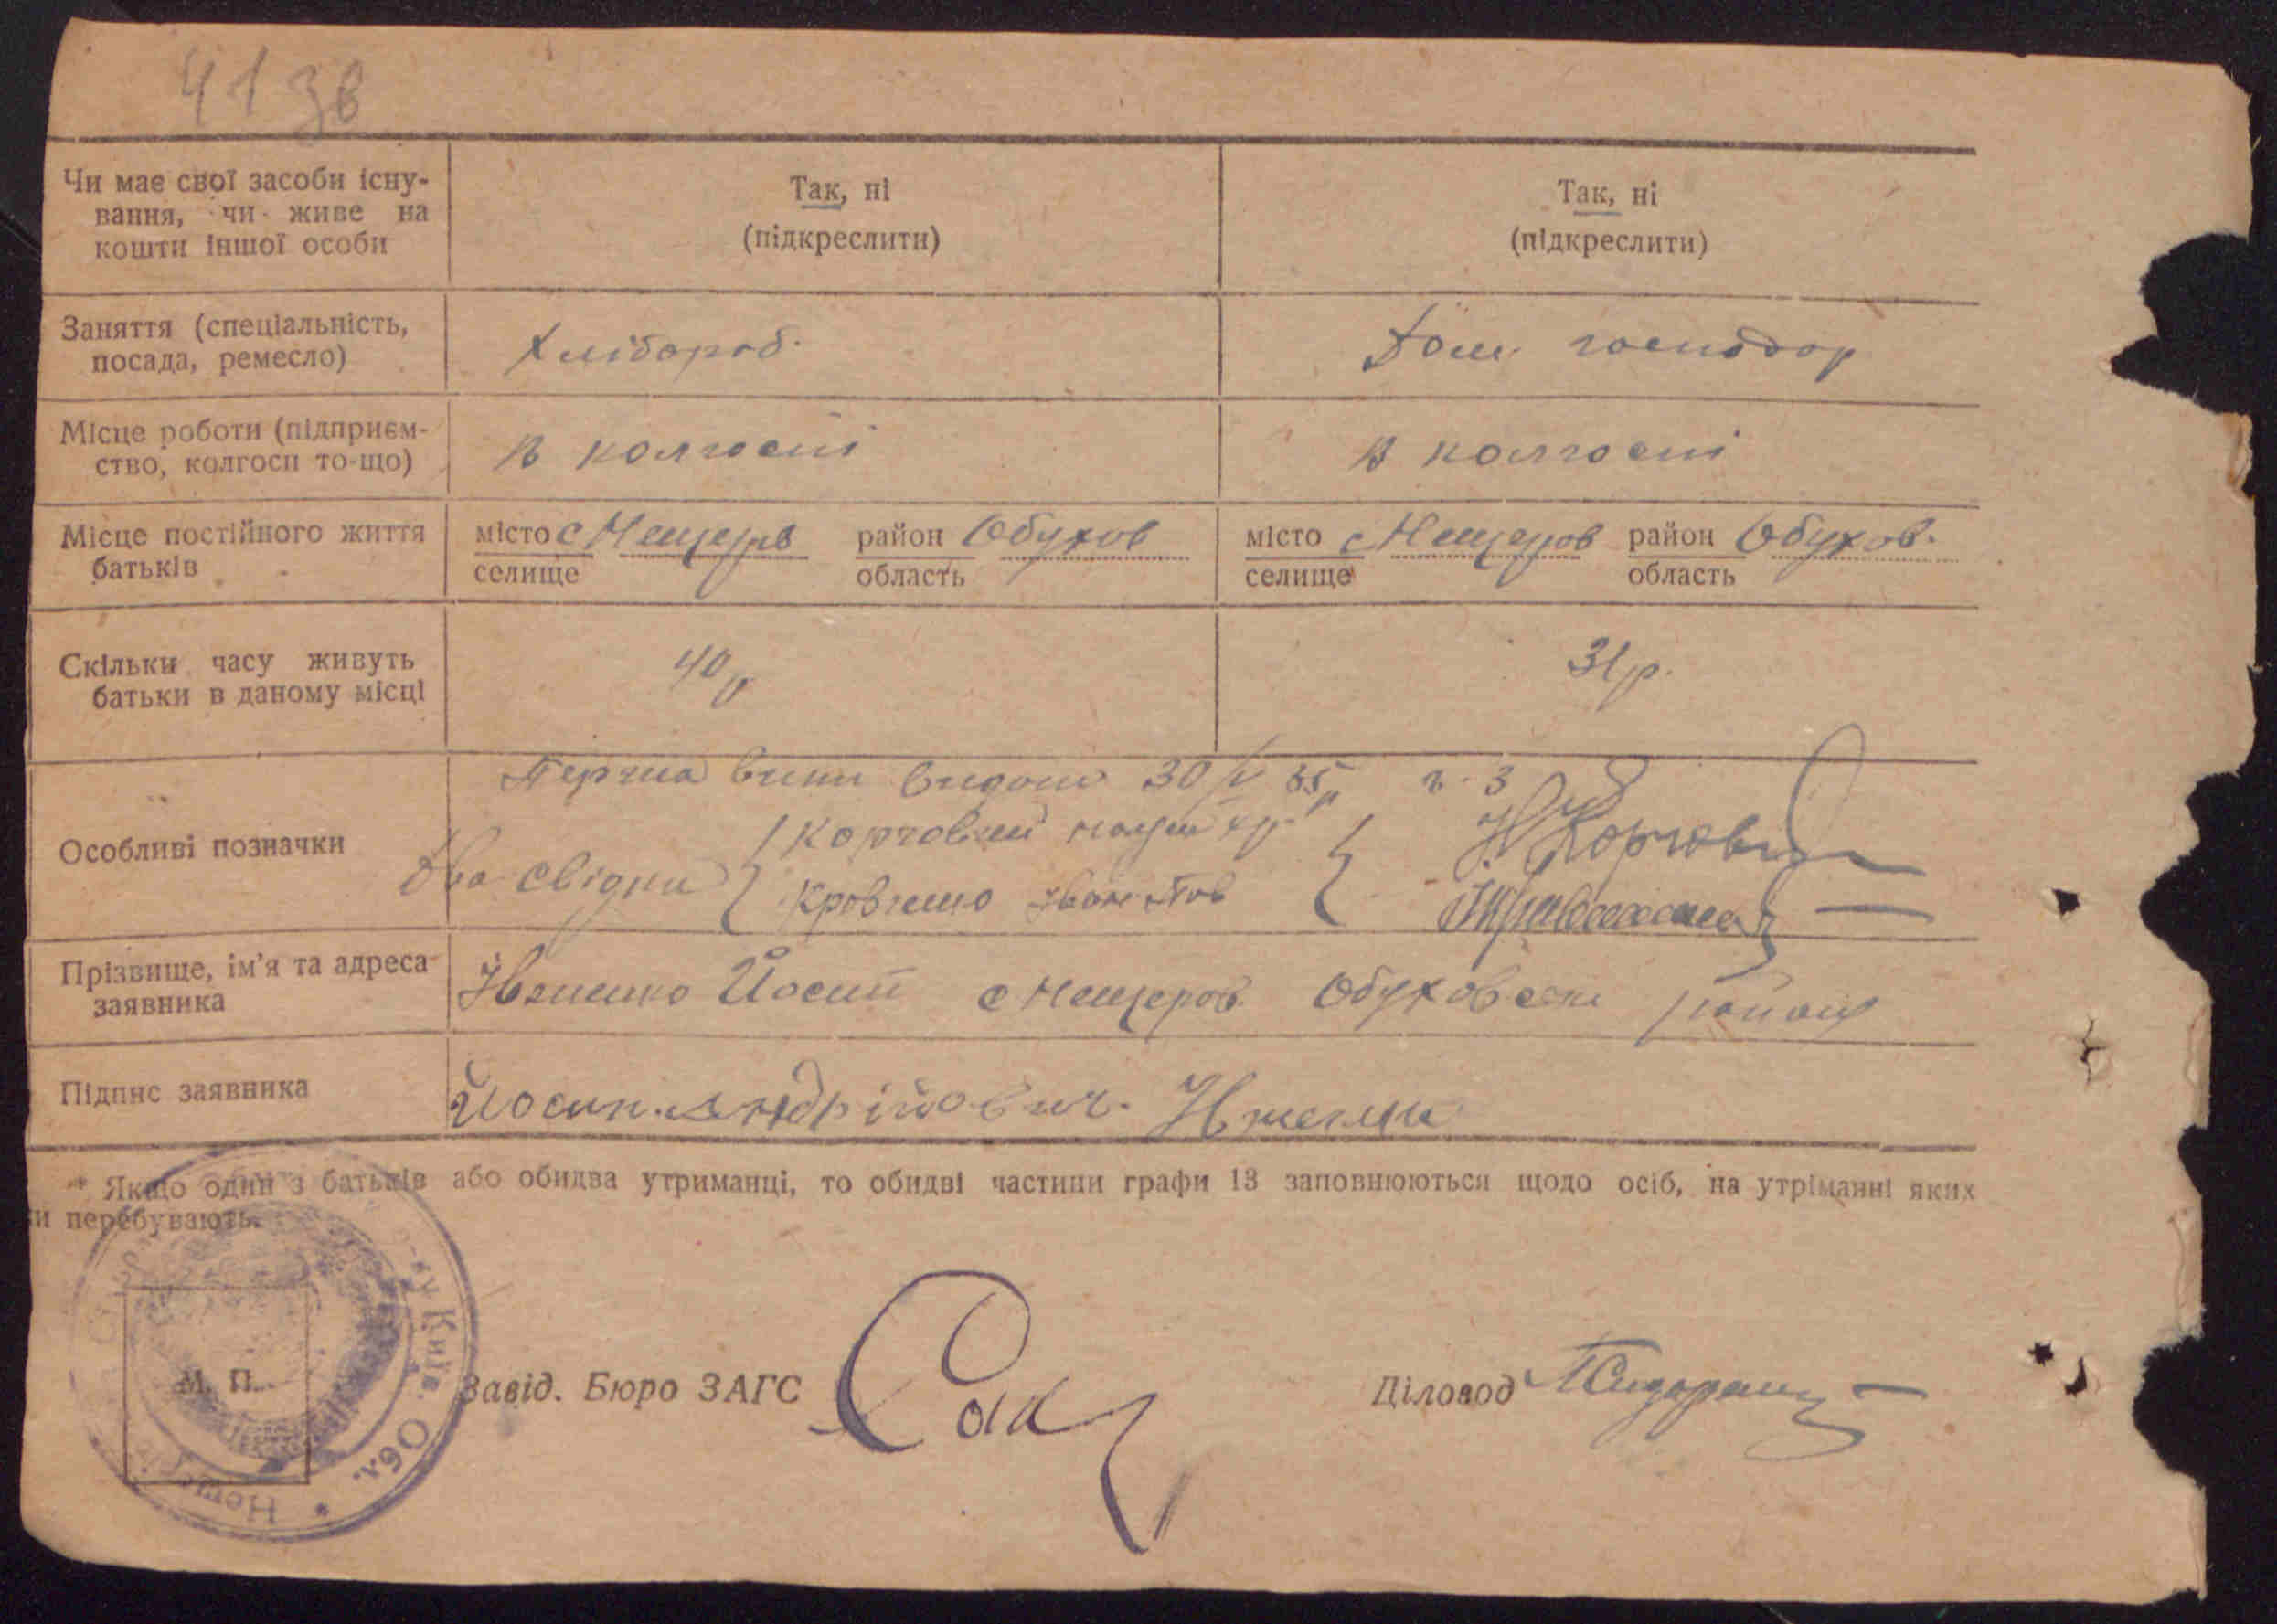 41 зв
Чи має свої засоби існу-
вання, чи живе на
кошти іншої особи
Так, ні
(підкреслити)
Так, ні
(підкреслити)
Заняття (спеціальність,
посада, ремесло)
Хлібороб.
Дом господар
Місце роботи (підприєм-
ство, колгосп то-що)
В колгоспі
В колгоспі
Місце постійного життя
батьків
місто с Нещерів район Обухов
селище область
місто с Нещеров район Обухов.
селище область
Скільки часу живуть
батьки в даному місці
40 р
31 р.
Особливі позначки
Перша видано 30/V 35р ч. 3
Два свідки
Корчовий
Іван
Прізвище, ім'я та адреса
заявника
Йосип с Нещеров Обуховськ району
Підпис заявника
Йосип. Андрійович.
* Якщо один з батьків або обидва утриманці, то обидві частини графи 13 заповнюються щодо осіб, на утріманні яких
и перебувають.
Київ. Обл.
М. П.
Завід. Бюро ЗАГС
Діловод